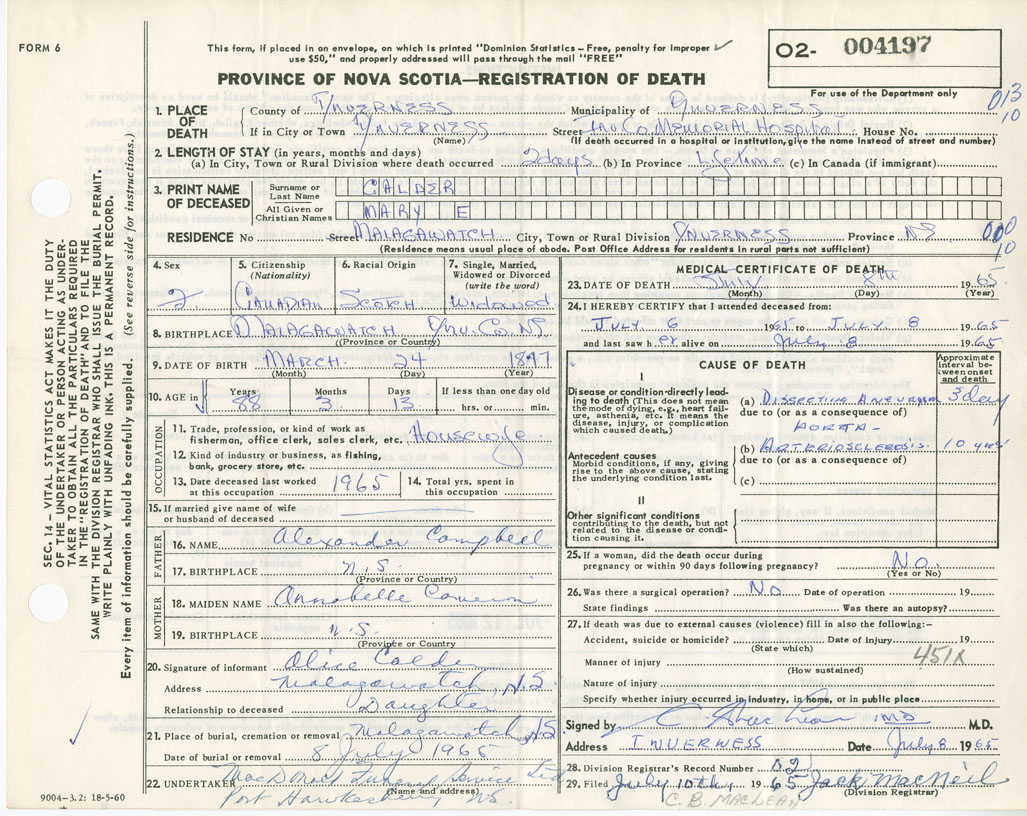 FORM 6
This form, if placed in an envelope, on which is printed "Dominion Statistics – Free, penalty for improper
use $50," and properly addressed will pass through the mail "FREE"
PROVINCE OF NOVA SCOTIA—REGISTRATION OF DEATH
02- 004197
For use of the Department only
013
10
1. PLACE OF DEATH
County of INVERNESS Municipality of INVERNESS
If in City or Town INVERNESS Street Inv. Co. MEMORIAL HOSPITAL House No.
(Name) (If death occurred in a hospital or institution, give the name instead of street and number)
2. LENGTH OF STAY (in years, months and days)
(a) In City, Town or Rural Division where death occurred 2 days (b) In Province Lifetime (c) In Canada (if immigrant)
3. PRINT NAME OF DECEASED
Surname or Last Name CALDER
All Given or Christian Names MARY E
RESIDENCE No Street MALAGAWATCH City, Town or Rural Division INVERNESS Province NS
(Residence means usual place of abode. Post Office Address for residents in rural parts not sufficient)
000
10
4. Sex 2
5. Citizenship (Nationality) CANADIAN
6. Racial Origin SCOTCH
7. Single, Married, Widowed or Divorced (write the word) Widowed
8. BIRTHPLACE MALAGAWATCH INV. Co. NS.
(Province or Country)
9. DATE OF BIRTH MARCH 24 1877
(Month) (Day) (Year)
10. AGE in Years 88 Months 3 Days 13 If less than one day old
hrs. or min.
OCCUPATION
11. Trade, profession, or kind of work as
fisherman, office clerk, sales clerk, etc. Housewife
12. Kind of industry or business, as fishing,
bank, grocery store, etc.
13. Date deceased last worked at this occupation 1965
14. Total yrs. spent in this occupation
15. If married give name of wife
or husband of deceased
FATHER
16. NAME Alexander Campbell
17. BIRTHPLACE N.S.
(Province or Country)
MOTHER
18. MAIDEN NAME Annabelle Cameron
19. BIRTHPLACE N.S.
(Province or Country)
20. Signature of informant Alice Calder
Address Malagawatch, N.S.
Relationship to deceased Daughter
21. Place of burial, cremation or removal Malagawatch NS
Date of burial or removal 8 July 1965
22. UNDERTAKER Funeral Service Ltd
(Name and address)
Port Hawkesbury NS.
MEDICAL CERTIFICATE OF DEATH
23. DATE OF DEATH July 8th 1965
(Month) (Day) (Year)
24. I HEREBY CERTIFY that I attended deceased from:
JULY 6 1965 to JULY 8 1965
and last saw her alive on July 8 1965
CAUSE OF DEATH
Approximate interval between onset and death
I
Disease or condition directly leading to death (This does not mean the mode of dying, e.g., heart failure, asthenia, etc. It means the disease, injury, or complication which caused death).
(a) DISSECTING ANEURYSM 3 day
due to (or as a consequence of)
AORTA -
Antecedent causes
Morbid conditions, if any, giving rise to the above cause, stating the underlying condition last.
(b) ARTERIOSCLEROSIS 10 years
due to (or as a consequence of)
(c)
II
Other significant conditions
contributing to the death, but not related to the disease or condition causing it.
25. If a woman, did the death occur during
pregnancy or within 90 days following pregnancy? No
(Yes or No)
26. Was there a surgical operation? No Date of operation 19
State findings Was there an autopsy?
27. If death was due to external causes (violence) fill in also the following:–
Accident, suicide or homicide? Date of injury 19
(State which)
451X
Manner of injury
(How sustained)
Nature of injury
Specify whether injury occurred in industry, in home, or in public place
Signed by MD M.D.
Address INVERNESS Date July 8 1965
28. Division Registrar's Record Number 32
29. Filed July 10th 1965 Jack MacNeil
(Division Registrar)
C. B. MACLEAN
SEC. 14 – VITAL STATISTICS ACT MAKES IT THE DUTY
OF THE UNDERTAKER OR PERSON ACTING AS UNDER-
TAKER TO OBTAIN ALL THE PARTICULARS REQUIRED
IN THE "REGISTRATION OF DEATH" AND TO FILE THE
SAME WITH THE DIVISION REGISTRAR WHO SHALL ISSUE THE BURIAL PERMIT.
WRITE PLAINLY WITH UNFADING INK. THIS IS A PERMANENT RECORD.
Every item of information should be carefully supplied. (See reverse side for instructions.)
9004–3.2: 18-5-60